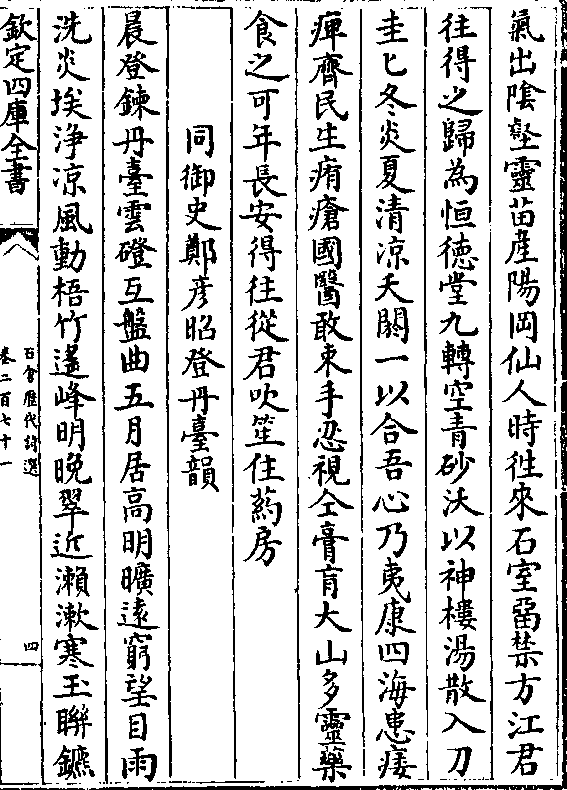 氣出陰壑靈苗産陽岡仙人時徃來石室留禁方江君
往得之歸為恒德堂九轉空青砂沃以神樓湯散入刀
圭匕冬炎夏清凉夭閼一以合吾心乃夷康四海患痿
痺齊民生痏瘡國醫敢束手忍視仝膏肓大山多靈藥
食之可年長安得往從君吹笙住葯房
同御史鄭彦昭登丹臺韻
晨登鍊丹臺雲磴互盤曲五月居高明曠逺窮望目雨
洗炎埃浄凉風動梧竹遙峰明晚翠近瀨漱寒玉聮鑣
欽定四庫全書
石倉歴代詩選
卷二百七十一
四